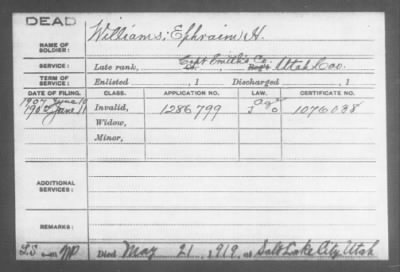 DEAD
Williams, Ephraim H.
NAME OF
SOLDIER:
Capt Smith's Co.
SERVICE: Late rank, Co. Reg't Utah Cav.
TERM OF
SERVICE: Enlisted , 1 Discharged , 1
DATE OF FILING. CLASS. APPLICATION NO. LAW. CERTIFICATE NO.
1907 June 10 Age
June 11 Invalid, 1286799 1076038
Widow,
Minor,
ADDITIONAL
SERVICES:
REMARKS:
Died May 21, 1919, at Salt Lake City, Utah